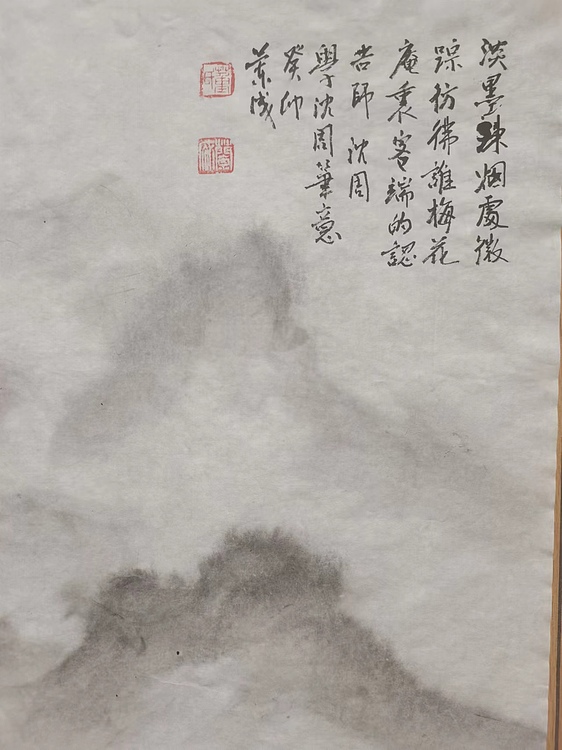 淡墨踈烟處微
踪彷彿誰梅花
庵裏客端的認
吾師 沈周
學沈周筆意
癸卯
董成